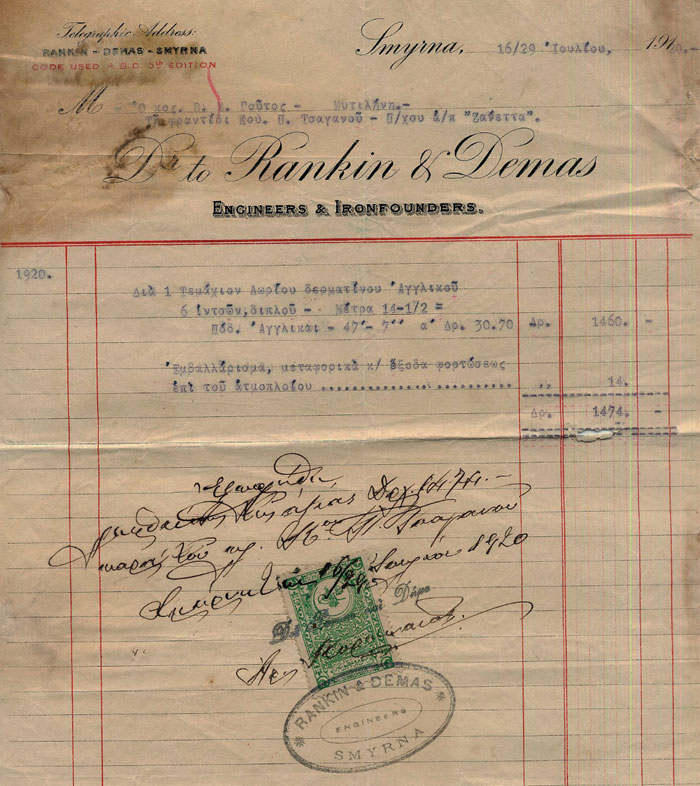 Telegraphic Address:
RANKIN - DEMAS - SMYRNA
CODE USED A.B.C. 5th EDITION
Smyrna, 16/29 Ἰουλίου, 1920.-
M Ὁ κος. Β. Γοῦτος - Μυτιλήνη.-
Τῇ φροντίδι Κου. Π. Τσαγανοῦ - Π/χου ἀ/π "Ζανεττα".
Dr. to Rankin & Demas
ENGINEERS & IRONFOUNDERS.
1920.
Διὰ 1 Τεμάχιον Λωρίου δερματίνου Ἀγγλικοῦ
6 ἰντσῶν, διπλοῦ - Μέτρα 14-1/2 =
Πόδ. Ἀγγλικαι - 47'- 7'' α' Δρ. 30.70 Δρ. 1460. -
Ἐμβαλλάρισμα, μεταφορικὰ κ/ ἔξοδα φορτώσεως
ἐπὶ τοῦ ἀτμοπλοίου .................... ,, 14.
Δρ. 1474. -
Ἐξωφλήθη
Δρχ 1474.-
παρὰ τοῦ κ. Π. Τσαγανοῦ
Σμύρνη τῇ 16/29 Ἰουλίου 1920
καὶ Δήμα
RANKIN & DEMAS
ENGINEERS
SMYRNA